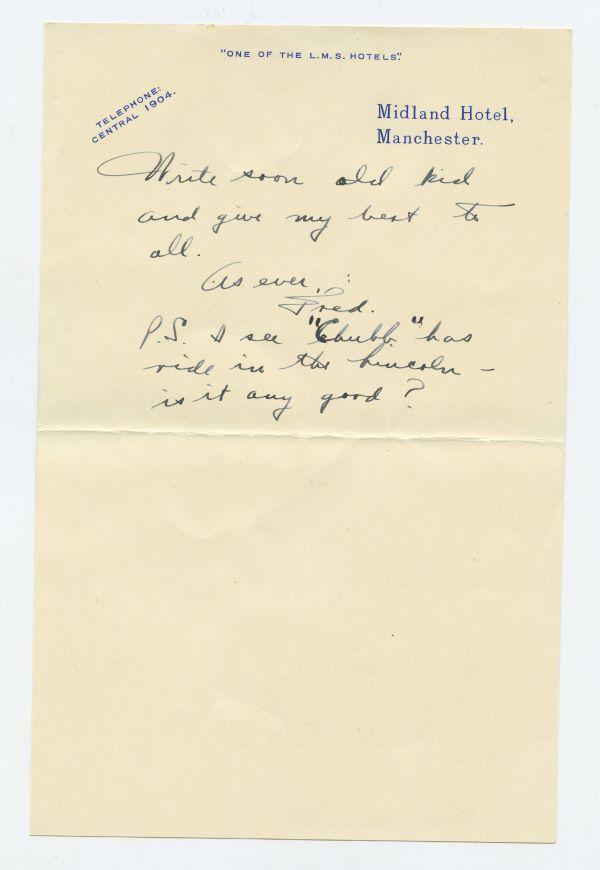 "ONE OF THE L.M.S. HOTELS".
TELEPHONE:
CENTRAL 1904.
Midland Hotel,
Manchester.
Write soon old kid
and give my best to
all.
As ever,
Fred.
P.S. I see "Chubb" has
ride in the Lincoln –
is it any good?